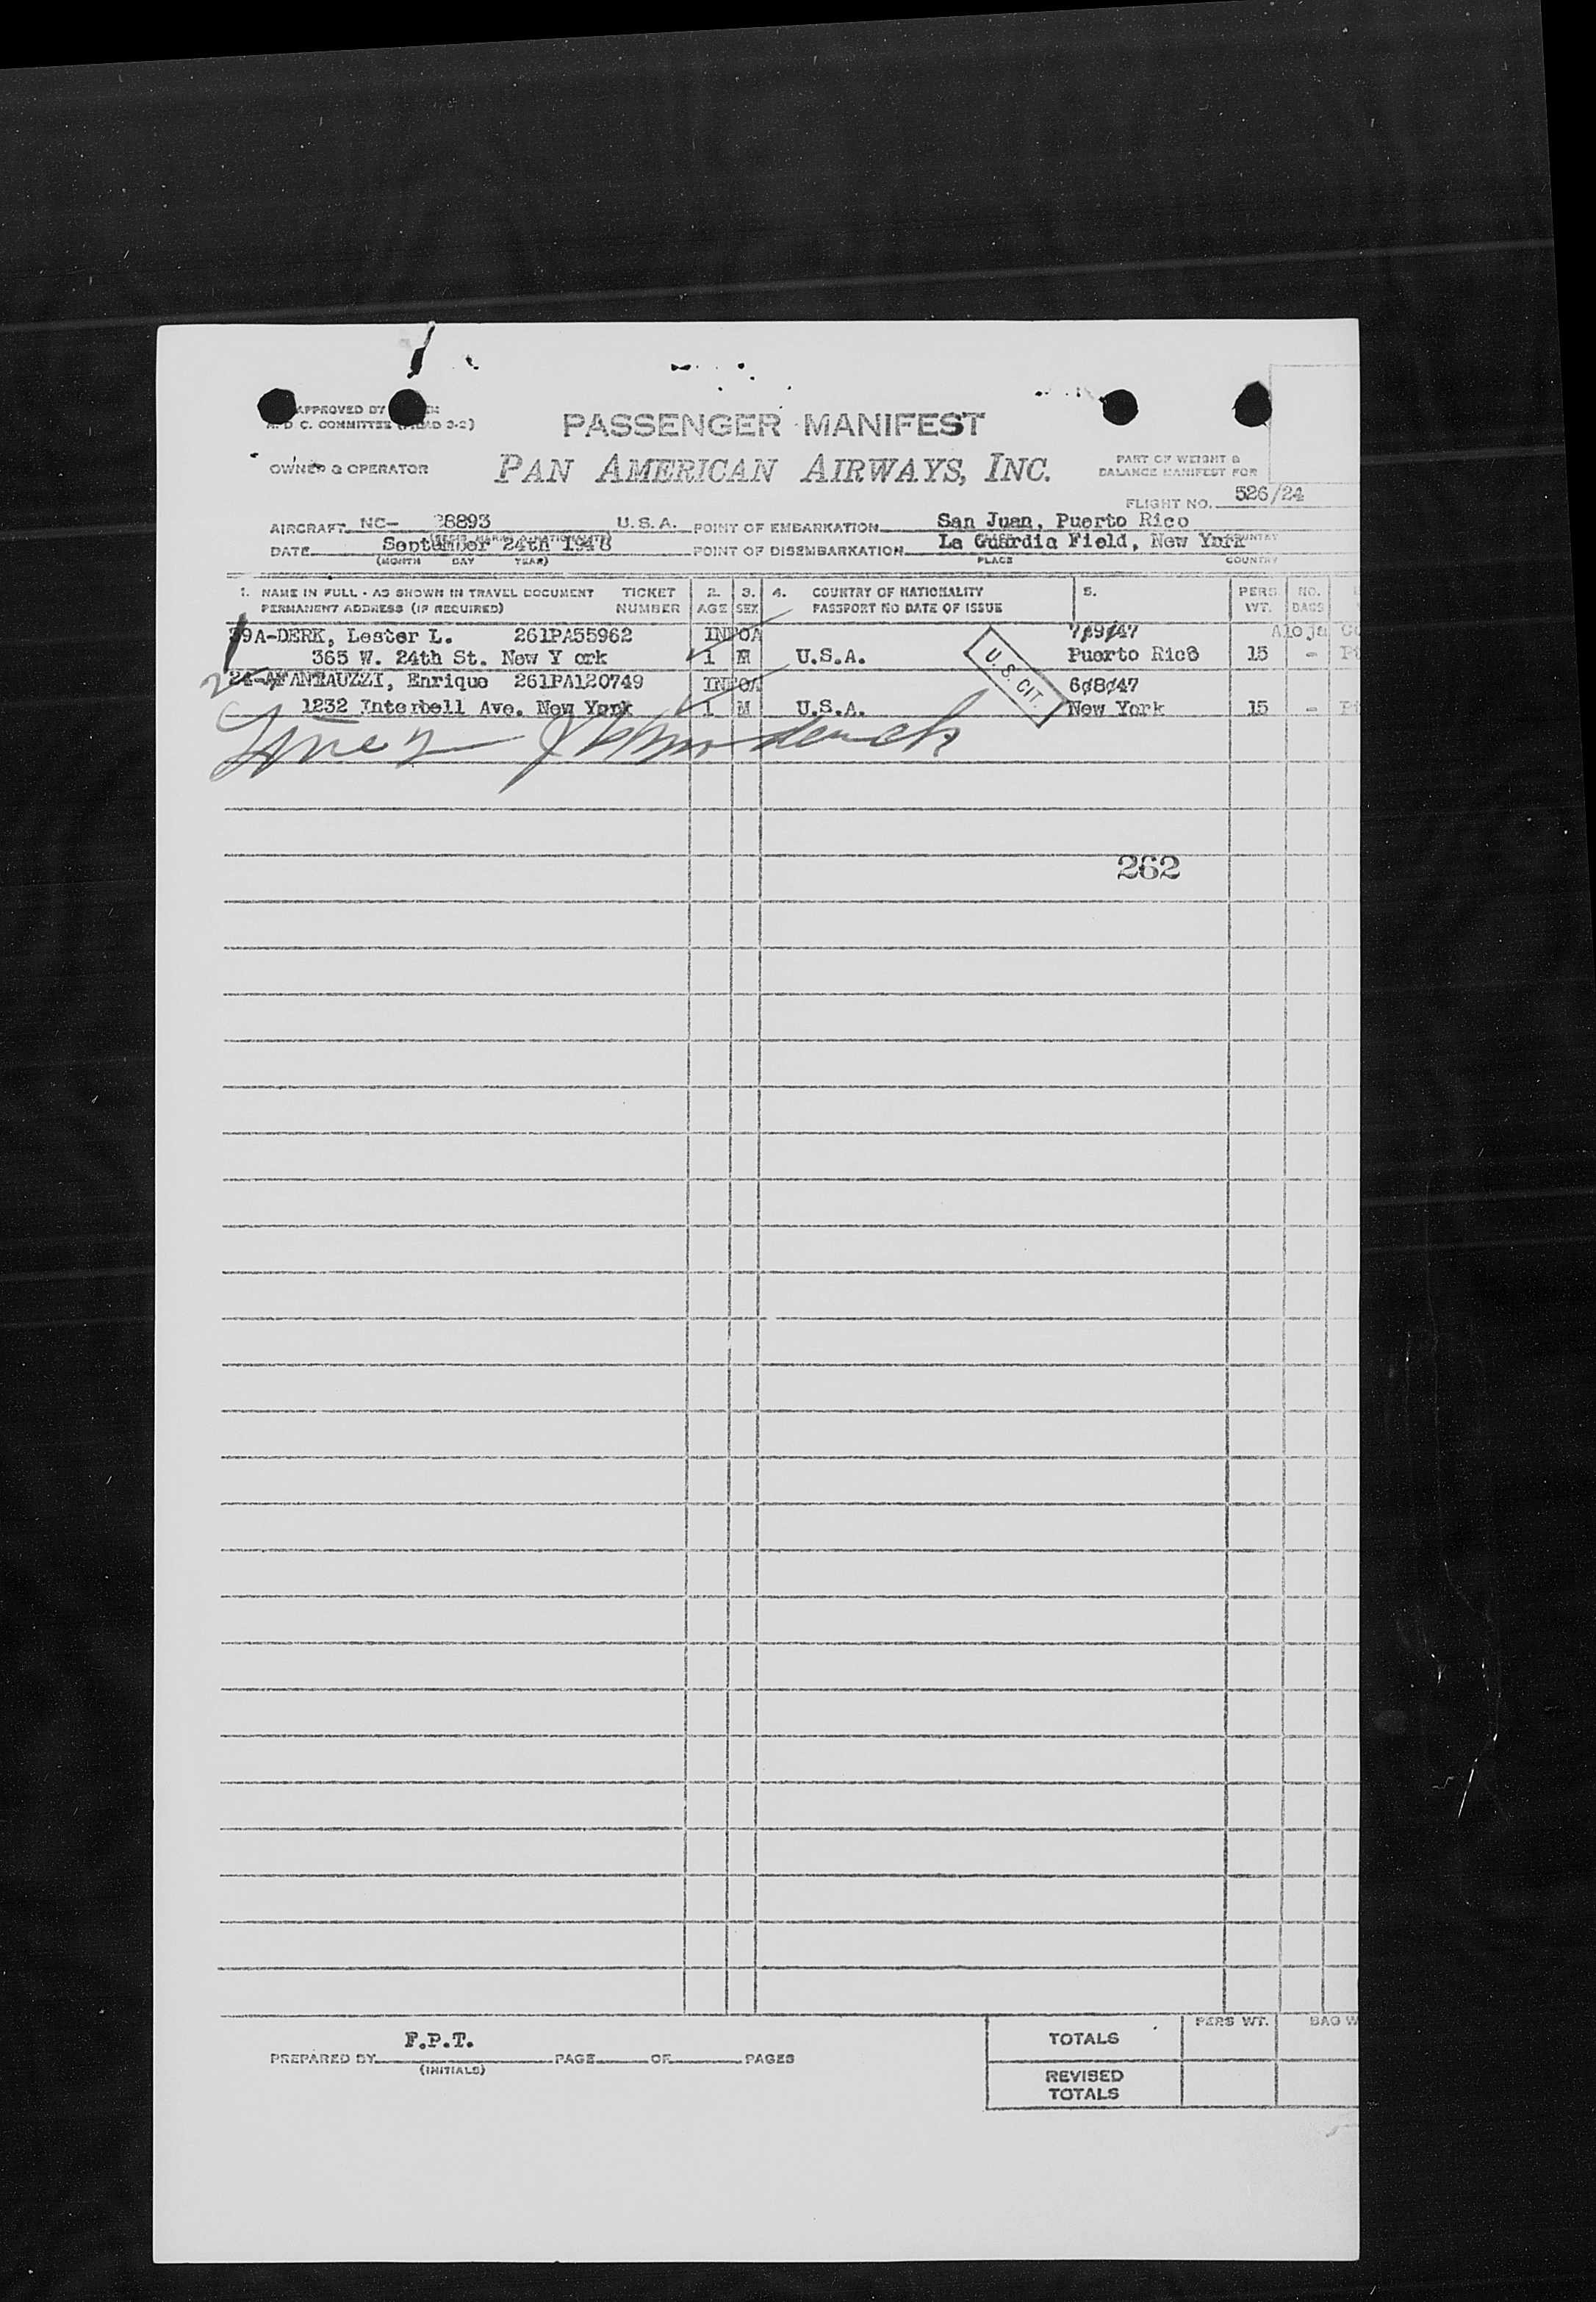 APPROVED BY
C. COMMITTEE
PASSENGER MANIFEST
OWNER & OPERATOR
PAN AMERICAN AIRWAYS, INC.
PART OF WEIGHT &
BALANCE MANIFEST FOR
FLIGHT NO. 526/24
AIRCRAFT NC- 88893 U.S.A. POINT OF EMBARKATION San Juan, Puerto Rico
DATE September 24th 1948 POINT OF DISEMBARKATION La Guardia Field, New York
(MONTH DAY YEAR) PLACE COUNTRY
1. NAME IN FULL - AS SHOWN IN TRAVEL DOCUMENT TICKET 2. 3. 4. COUNTRY OF NATIONALITY 5. PERS NO.
PERMANENT ADDRESS (IF REQUIRED) NUMBER AGE SEX PASSPORT NO DATE OF ISSUE WT. BAGS
39A-DERK, Lester L. 261PA55962 7/9/47
365 W. 24th St. New Y ork 1 M U.S.A. Puerto Rico 15 -
FANTAUZZI, Enrique 261PA120749 6/8/47
1232 Interbell Ave. New York 1 M U.S.A. New York 15 -
U.S. CIT.
262
F.P.T.
PREPARED BY PAGE OF PAGES
(INITIALS)
PERS WT. BAG W
TOTALS
REVISED
TOTALS